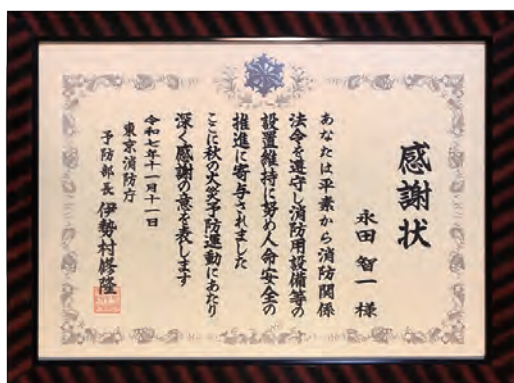 感謝状
永田智一様
あなたは平素から消防関係
法令を遵守し消防用設備等の
設置維持に努め人命安全の
推進に寄与されました
ここに秋の火災予防運動にあたり
深く感謝の意を表します
令和七年十一月十一日
東京消防庁
予防部長 伊勢村修隆